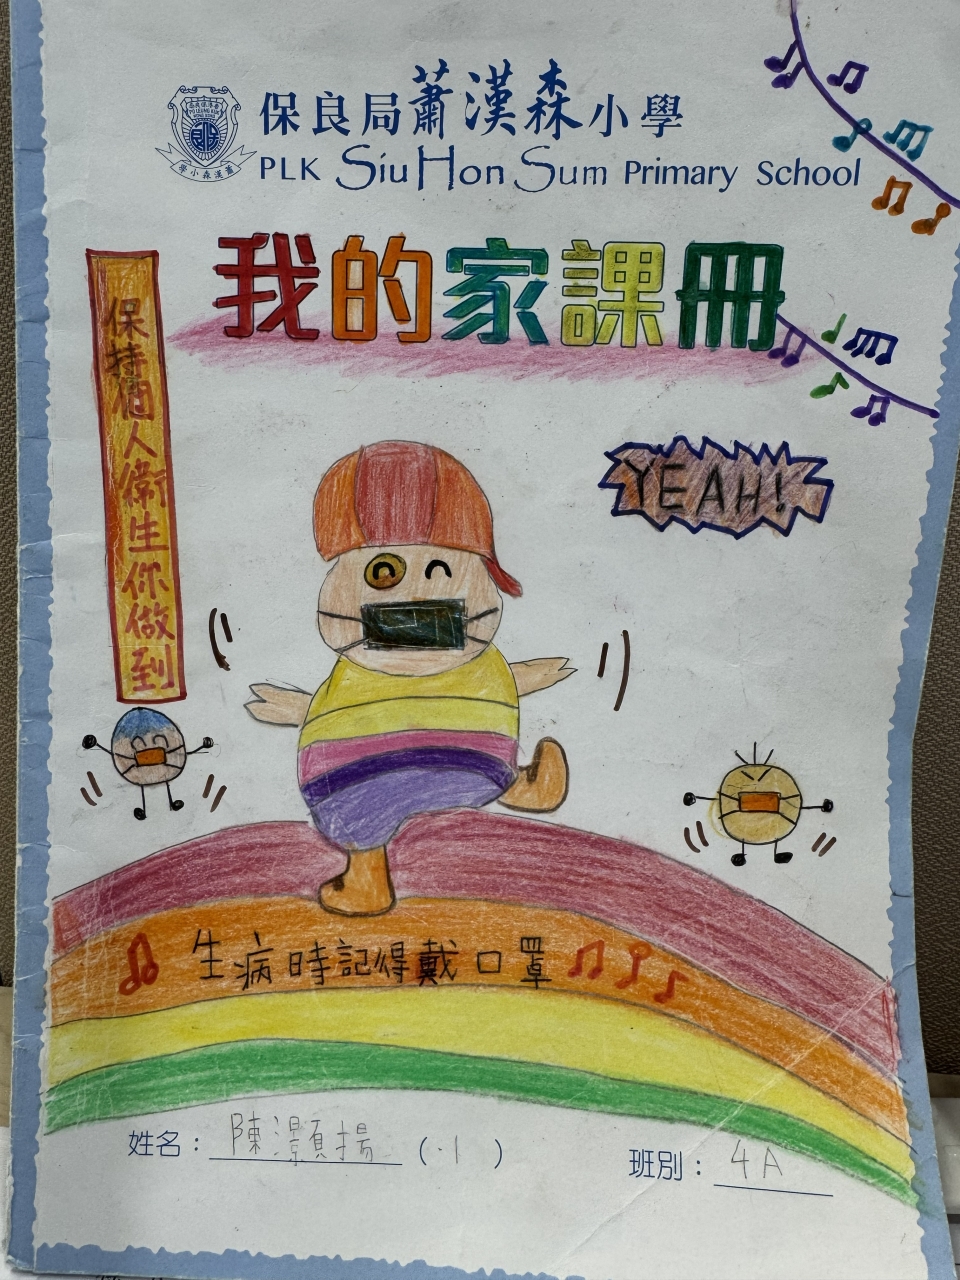 保良局蕭漢森小學
PLK Siu Hon Sum Primary School
我的家課冊
保持個人衛生你做到
YEAH!
生病時記得戴口罩
姓名：陳灝揚（1）
班別：4A